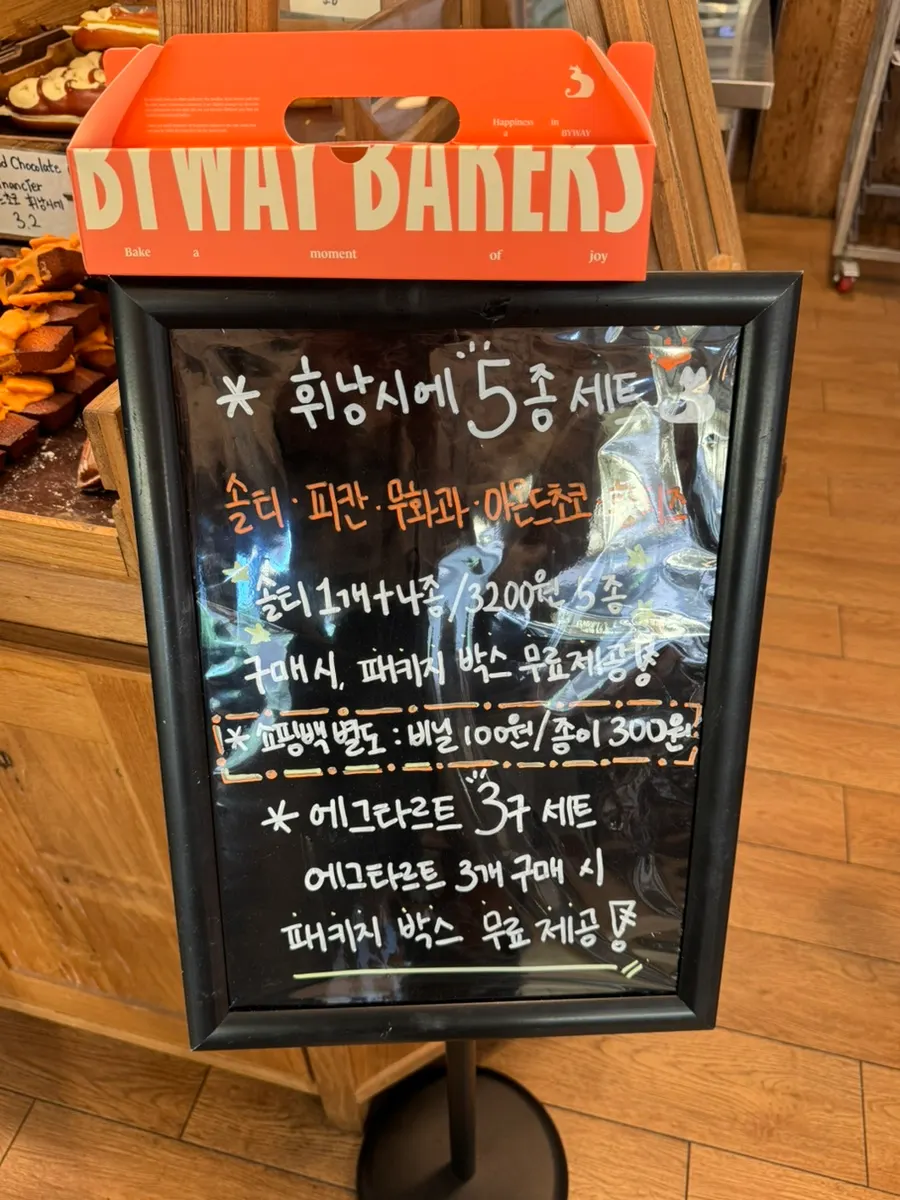 Happiness in
a BYWAY
BYWAY BAKERS
Bake a moment of joy
d Chocolate
nancier
초코 휘낭시에
3.2
* 휘낭시에 5종 세트
솔티·피칸·무화과·아몬드쵸코
솔티 1개+4종/3200원 5종
구매 시, 패키지 박스 무료 제공!
* 쇼핑백 별도 : 비닐 100원/종이 300원
* 에그타르트 3구 세트
에그타르트 3개 구매 시
패키지 박스 무료 제공!